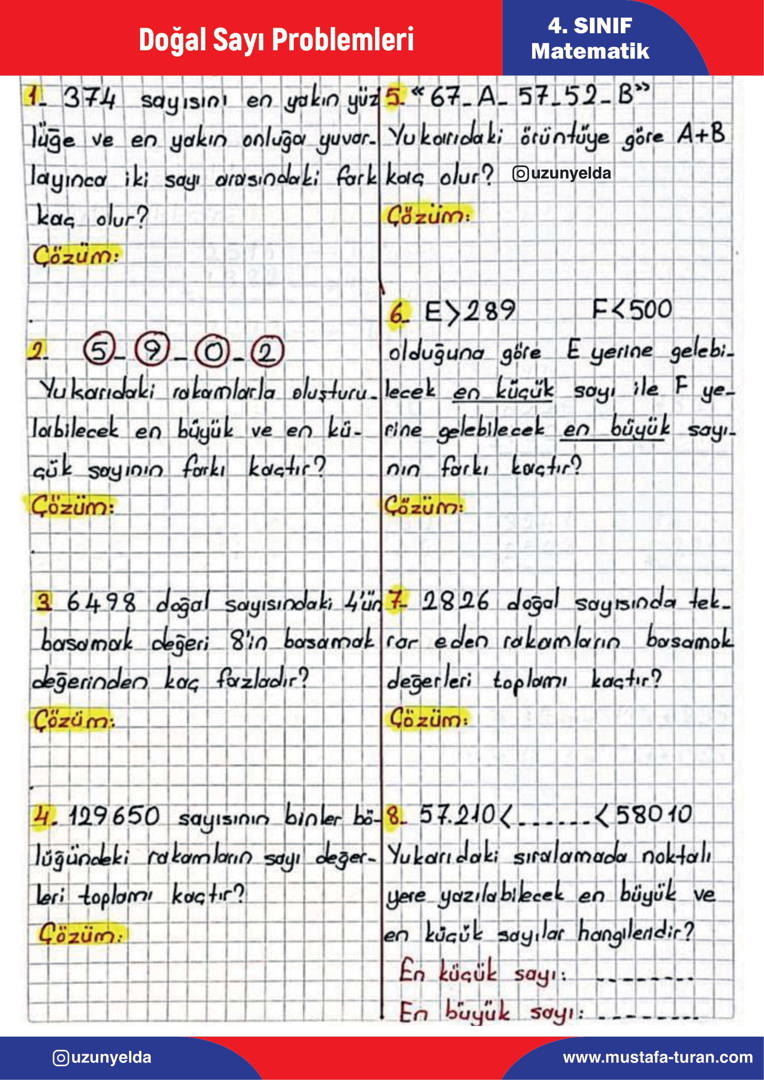 Doğal Sayı Problemleri
4. SINIF
Matematik
1. 374 sayısını en yakın yüz
lüğe ve en yakın onluğa yuvar-
layınca iki sayı arasındaki fark
kaç olur?
Çözüm:
2. 5 - 9 - 0 - 2
Yukarıdaki rakamlarla oluşturu-
labilecek en büyük ve en kü-
çük sayının farkı kaçtır?
Çözüm:
3 6498 doğal sayısındaki 4'ün
basamak değeri 8'in basamak
değerinden kaç fazladır?
Çözüm:
4. 129650 sayısının binler bö-
lüğündeki rakamların sayı değer-
leri toplamı kaçtır?
Çözüm:
5. "67-A-57-52-B"
Yukarıdaki örüntüye göre A+B
kaç olur? uzunyelda
Çözüm:
6. E>289 F<500
olduğuna göre E yerine gelebi-
lecek en küçük sayı ile F ye-
rine gelebilecek en büyük sayı-
nın farkı kaçtır?
Çözüm:
7. 2826 doğal sayısında tek-
rar eden rakamların basamak
değerleri toplamı kaçtır?
Çözüm:
8. 57.210<.......<58010
Yukarıdaki sıralamada noktalı
yere yazılabilecek en büyük ve
en küçük sayılar hangileridir?
En küçük sayı: --------
En büyük sayı: --------
uzunyelda
www.mustafa-turan.com